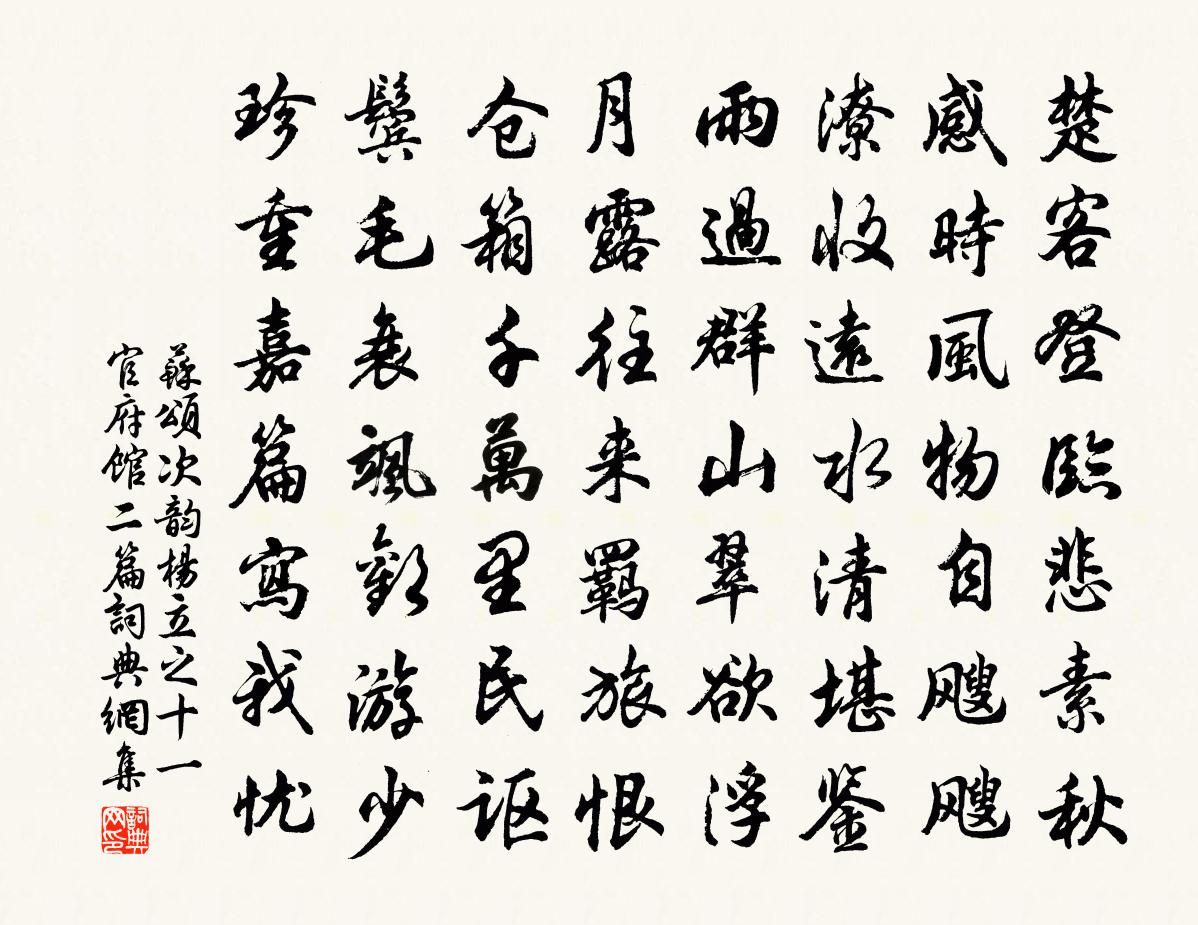 楚客登臨悲素秋
感時風物自颼颼
潦收遠水清堪鉴
雨過群山翠欲浮
月露往来羁旅恨
仓箱千萬里民讴
鬓毛衰飒歡游少
珍重嘉篇寫我忧
蘇頌次韵楊立之十一
官府館二篇詞典網集
詞典网印